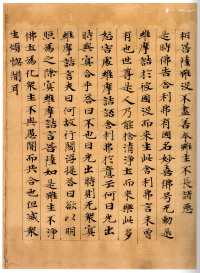 相菩薩雖沒不盡善本雖生不長諸惡
是時佛告舍利弗有國名妙喜佛号无動是
維摩詰於彼國沒而來生此舍利弗言未曾
有也世尊是人乃能捨清淨土而來樂此多
怒害處維摩詰語舍利弗於意云何日光出
時與冥合乎答曰不也日光出時則无衆冥
維摩詰言夫日何故行閻浮提答曰欲以明
照為之除冥維摩詰言菩薩如是雖生不淨
佛土為化衆生不與愚闇而共合也但滅衆
生煩惱闇耳